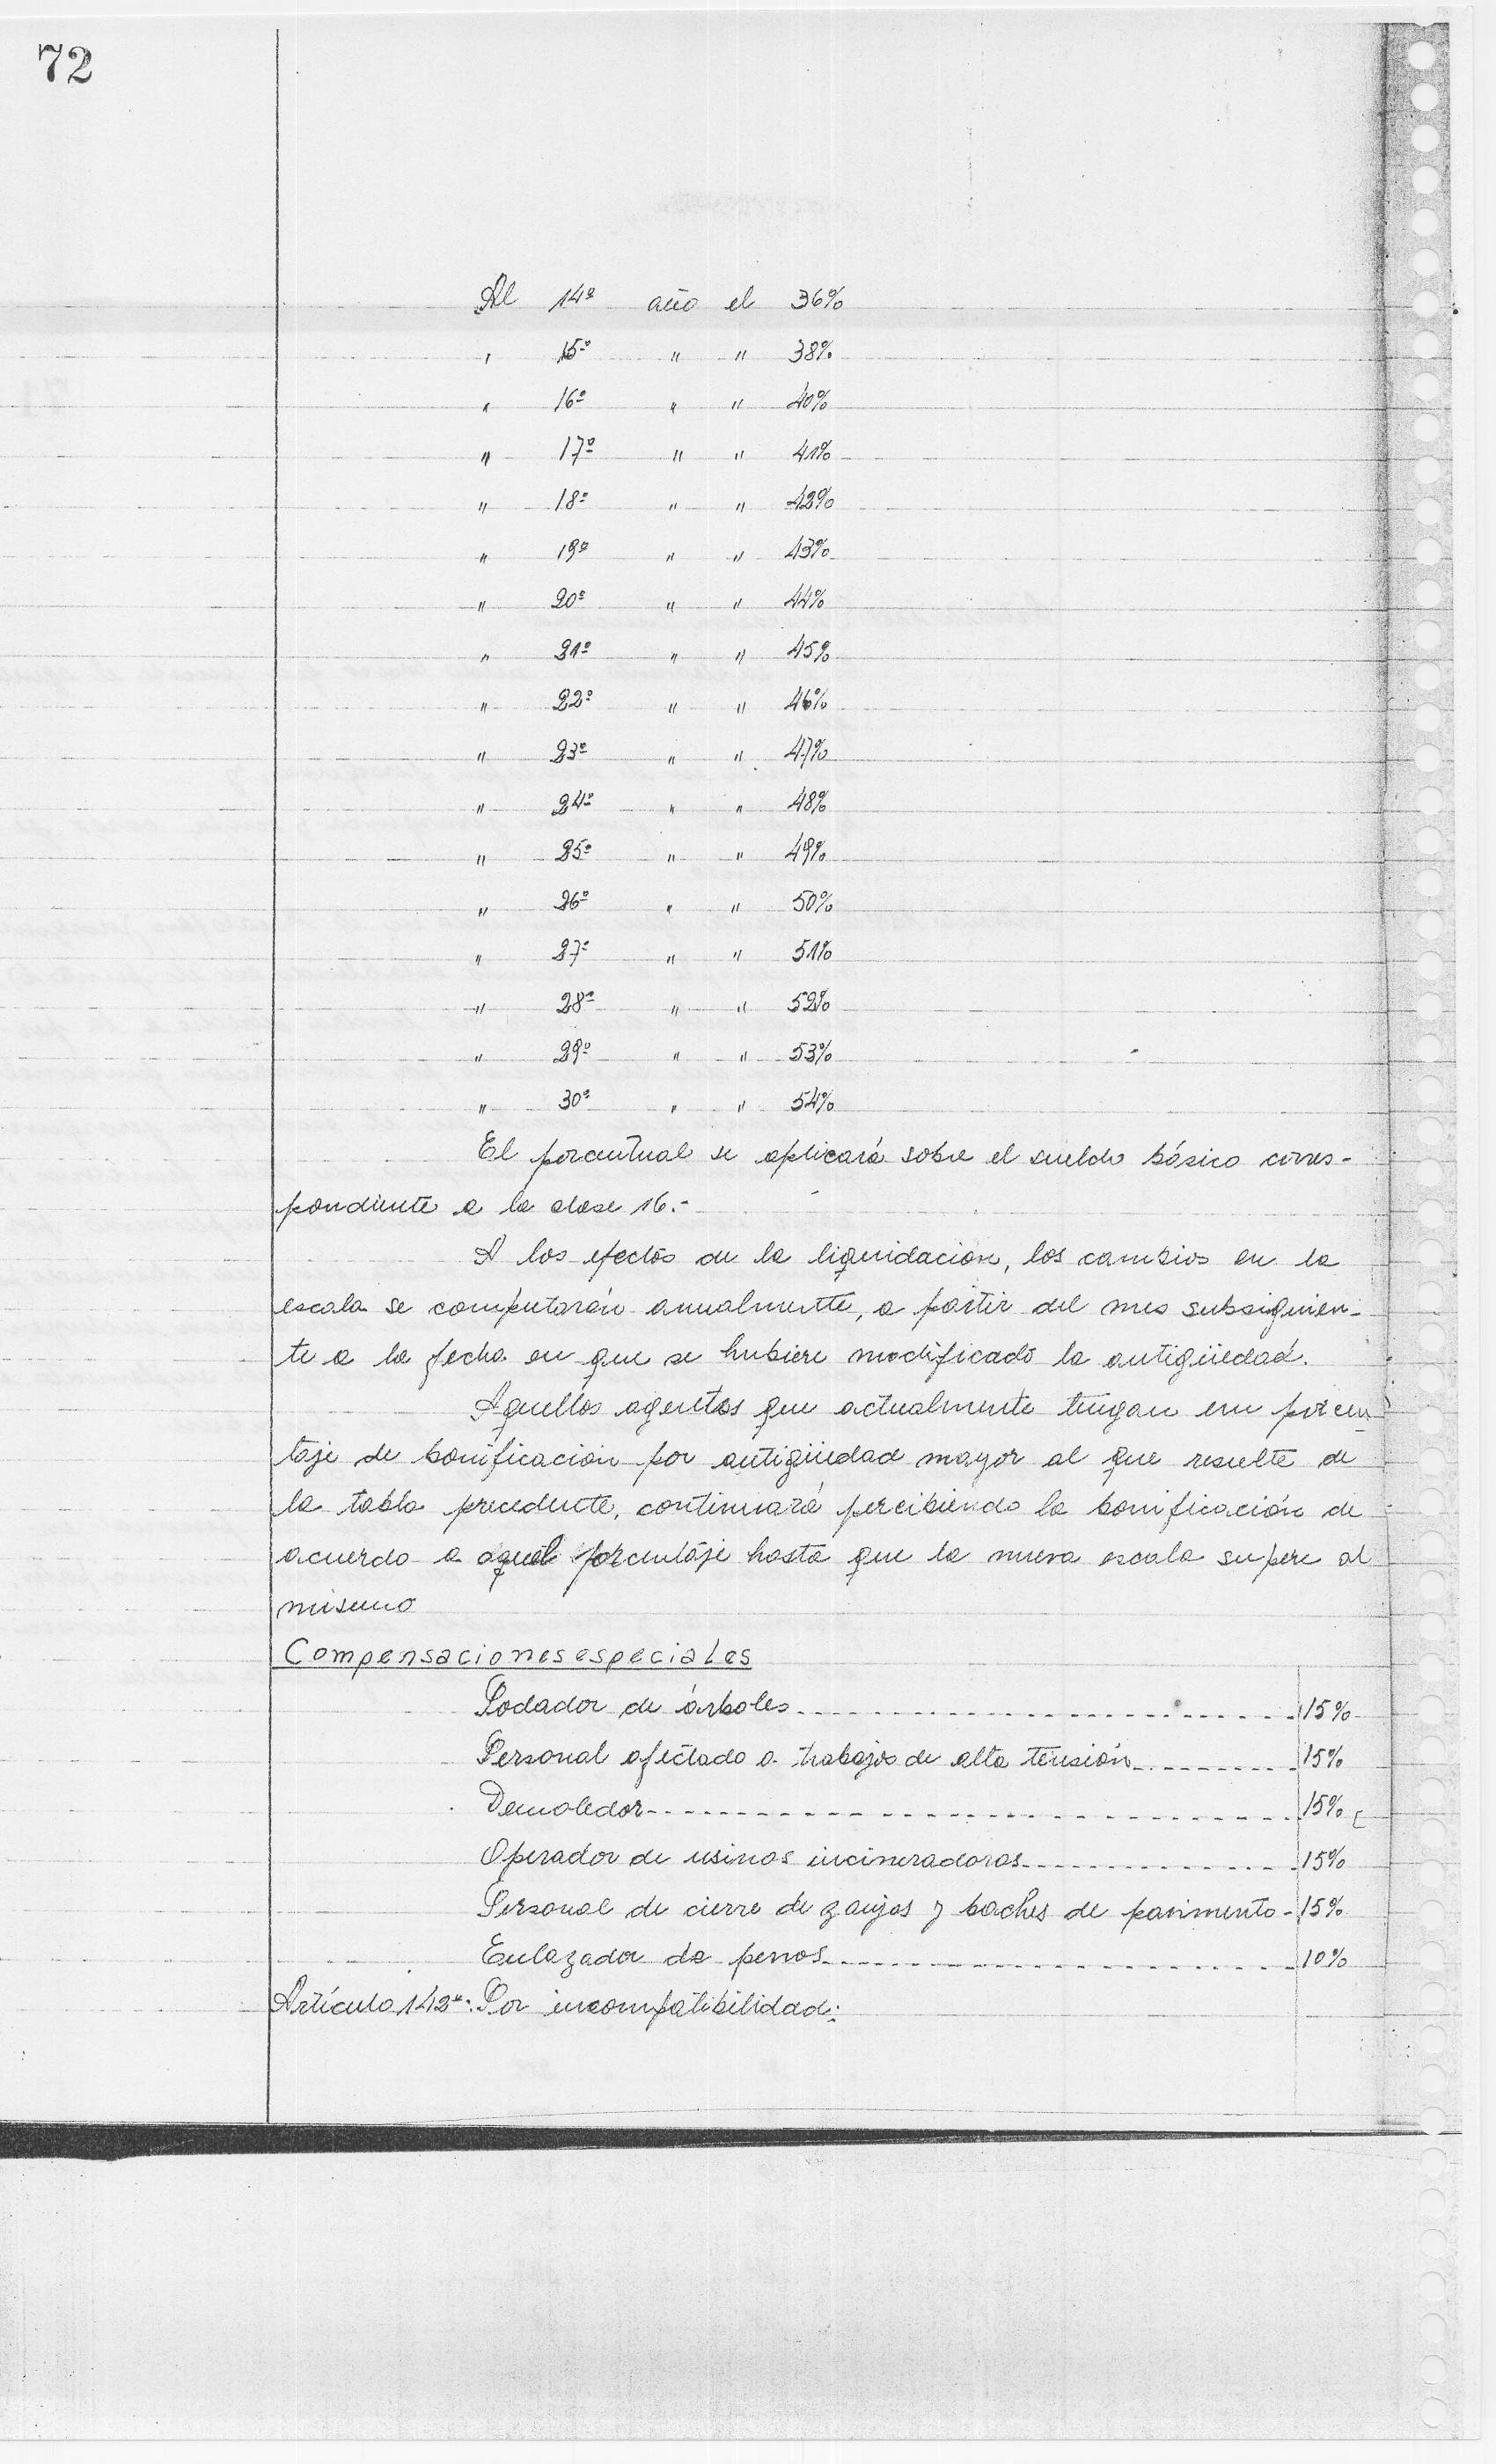 72
Al 14º año el 36%
" 15º " " 38%
" 16º " " 40%
" 17º " " 41%
" 18º " " 42%
" 19º " " 43%
" 20º " " 44%
" 21º " " 45%
" 22º " " 46%
" 23º " " 47%
" 24º " " 48%
" 25º " " 49%
" 26º " " 50%
" 27º " " 51%
" 28º " " 52%
" 29º " " 53%
" 30º " " 54%
El porcentual se aplicará sobre el sueldo básico corres-
pondiente a la clase 16.-
A los efectos de la liquidación, los cambios en la
escala se computarán anualmente, a partir del mes subsiguien-
te a la fecha en que se hubiere modificado la antigüedad.
Aquellos agentes que actualmente tengan un porcen-
taje de bonificación por antigüedad mayor al que resulte de
la tabla precedente, continuará percibiendo la bonificación de
acuerdo a aquel porcentaje hasta que la nueva escala supere al
mismo
Compensaciones especiales
Podador de árboles 15%
Personal afectado a trabajos de alta tensión 15%
Demoledor 15%
Operador de usinas incineradoras 15%
Personal de cierre de zanjas y baches de pavimento - 15%
Enlazador de perros 10%
Artículo 142º: Por incompatibilidad: